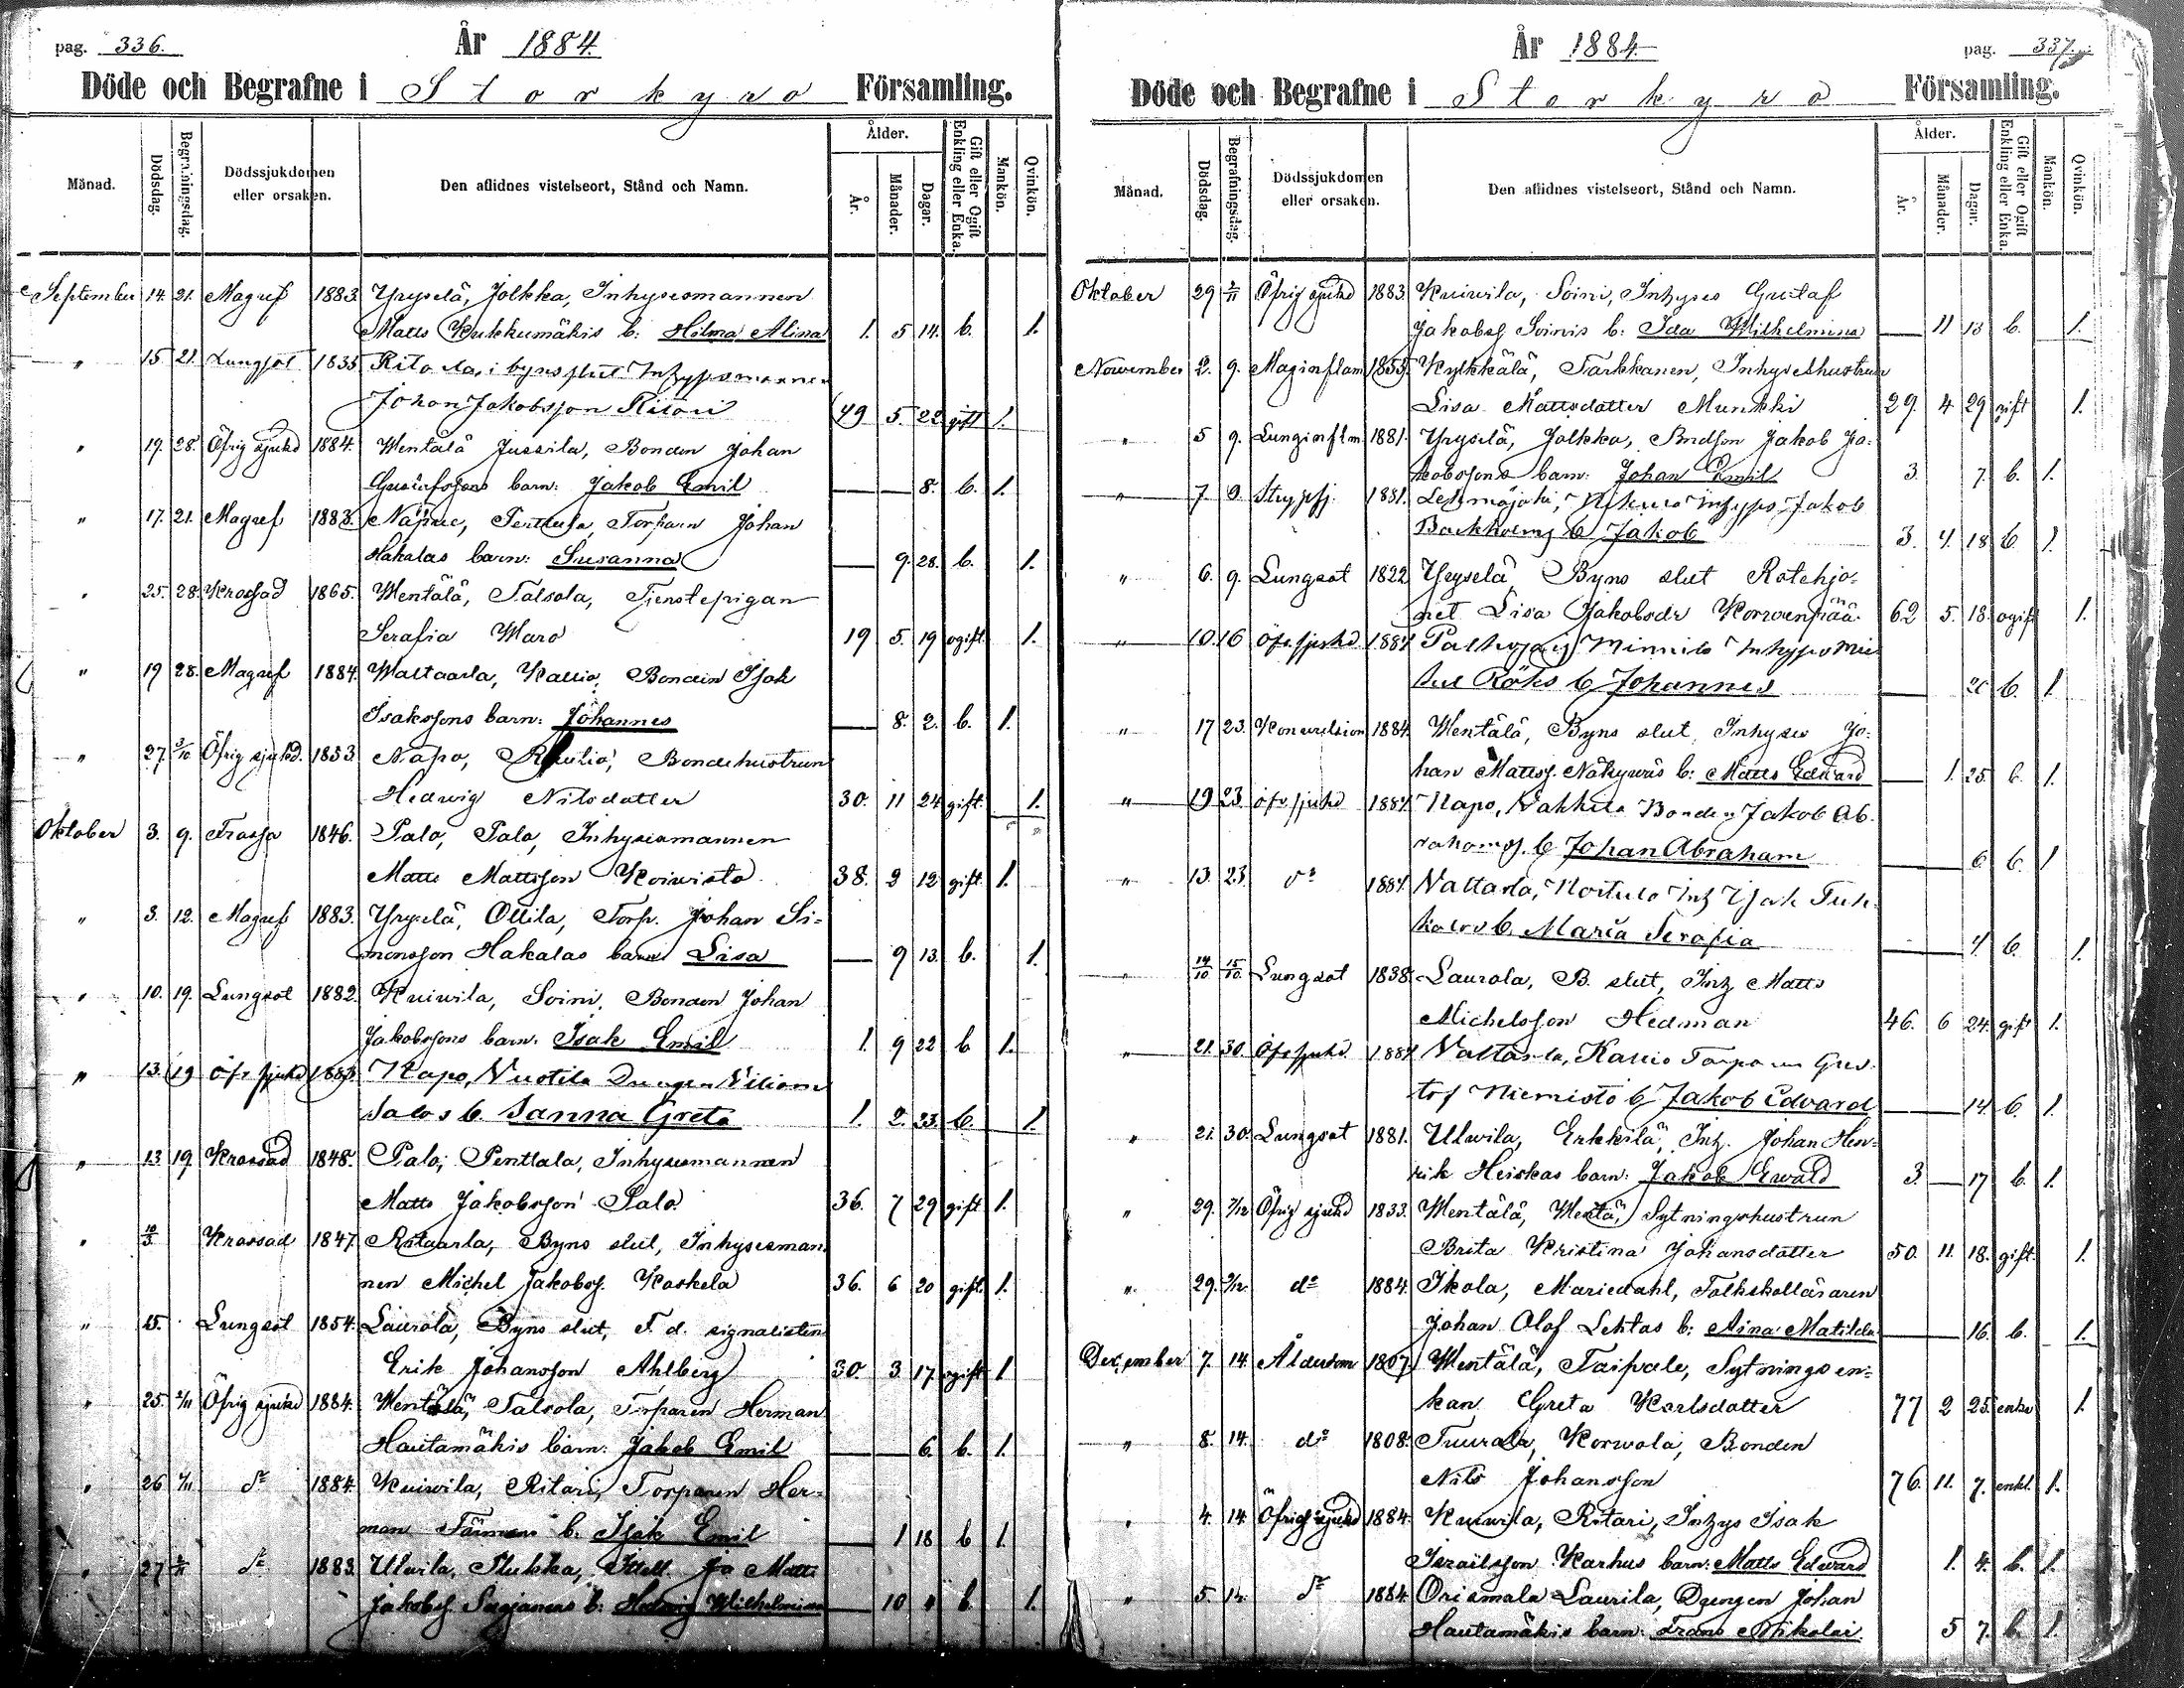 pag. 336.
År 1884.
Döde och Begrafne i Storkyro Församling.
Månad. Dödsdag. Begrafningsdag. Dödssjukdomen eller orsaken. Den aflidnes vistelseort, Stånd och Namn. Ålder. År. Månader. Dagar. Gift eller Ogift Enkling eller Enka. Mankön. Qvinkön.
September 14. 21. Magref 1883. Yryselä, Jolkka, Inhysesmannen
Matts Kukkumäkis b: Hilma Alina 1. 5 14. b. 1.
" 15 21. Lungsot 1835 i byns slut Inhysesmannen
Johan Jakobsson Ritari 49 5. 22 gift 1.
" 19. 28. Öfrig sjukd 1884. Wentälä Jussila, Bonden Johan
Gustafssons barn: Jakob Emil 8. b. 1.
" 17. 21. Magref 1883. Perttula, Torparn Johan
Hakalas barn: Susanna 9. 28. b. 1.
" 25. 28. Krossad 1865. Wentälä, Talsola, Tjenstepigan
Serafia Waro 19 5. 19 ogift. 1.
" 19 28. Magref 1884. Waltaarla, Kallio, Bonden Isak
Isakssons barn: Johannes 8. 2. b. 1.
" 27. 3/10 Öfrig sjukd. 1853. Napo, Bondehustrun
Hedvig Nilsdatter 30. 11 24 gift. 1.
Oktober 3. 9. Frassa 1846. Palo, Palo, Inhysesmannen
Matts Mattsson Koivisto 38. 2 12 gift. 1.
" 3. 12. Magref 1883. Yryselä, Ollila, Torp. Johan Si=
monsson Hakalas barn Lisa 9 13. b. 1.
" 10. 19. Lungsot 1882. Kuivila, Soini, Bonden Johan
Jakobssons barn. Isak Emil 1. 9 22 b 1.
" 13. 19 öfr sjukd 1883. Napo, Vuotila Drengen Viliam
Salos b. Sanna Greta 1. 2. 23. b. 1.
" 13 19. Krossad 1848. Palo, Penttala, Inhysesmannen
Matts Jakobsson Salo. 36. 7 29 gift 1.
" Krossad 1847. Ritaarla, Byns slut, Inhysesman
nen Michel Jakobss. Koskela 36. 6 20 gift. 1.
" 15. Lungsot 1854. Laurola, Byns slut, F. d. signalisten
Erik Johansson Ahlberg 30. 3 17 ogift 1
" 25. 2/11 Öfrig sjukd 1884. Wentälä, Talsola, Torparen Herman
Hautamäkis barn: Jakob Emil 6. b. 1.
" 26 2/11 do 1884. Kuivila, Ritari, Torparen Her=
man b. Isak Emil 1 18 b 1.
" 27 2/11 do 1883. Ulvila, Matts
Jakobss. b: Hedvig Wilhelmina 10 b. 1.
pag. 337.
År 1884.
Döde och Begrafne i Storkyro Församling.
Månad. Dödsdag. Begrafningsdag. Dödssjukdomen eller orsaken. Den aflidnes vistelseort, Stånd och Namn. Ålder. År. Månader. Dagar. Gift eller Ogift Enkling eller Enka. Mankön. Qvinkön.
Oktober 29 2/11 Öfrig sjukd 1883. Kuivila, Soini, Inhyses Gustaf
Jakobss Soinis b: Ida Wilhelmina 11 13 b. 1.
November 2. 9. Maginflam 1855. Kylkkälä, Tarkkanen, Inhyseshustrun
Lisa Mattsdatter Munkki 29. 4 29 gift 1.
" 5 9. Lunginflm 1881. Yryselä, Jolkka, Bndson Jakob Ja=
kobssons barn: Johan Emil 3. 7. b. 1.
" 7 9. Strypsj. 1881. Lehmäjoki, Inhyses Jakob
Backholms b Jakob 3. 4. 18 b. 1.
" 6. 9. Lungsot 1822 Yryselä Byns slut Rotehjo=
net Lisa Jakobsdr Korvenpää. 62 5. 18. ogift 1.
" 10. 16 öfr. sjukd. 1884 Minnilä Inhyses Mic
hel Röks b Johannes 26 b. 1.
" 17 23. Konvulsion 1884. Wentälä, Byns slut, Inhyses Jo=
han Matss. Näkyväs b: Matts Edvard 1. 25. b. 1.
" 19 23 öfr sjukd 1884. Napo, Bonden Jakob Ab.
rahams. b Johan Abraham 6 b. 1
" 13. 23. do 1884. Valtarla, Inh Isak
b. Maria Serafia 4 b. 1
" 14/10 15/10. Lungsot 1838. Laurola, B. slut, Inh Matts
Michelsson Hedman 46. 6 24. gift 1.
" 21. 30. Öfr sjukd 1884. Valtarla, Kallio Torparen Gus
taf Niemistö b Jakob Edvard 14 b. 1.
" 21. 30. Lungsot 1881. Ulvila, Erkkilä, Inh. Johan Hen=
rik Heiskas barn: Jakob Ewald 3. 17 b. 1.
" 29. 7/12 Öfrig sjukd 1833. Wentälä, Wentä, Sytningshustrun
Brita Kristina Johansdatter 50. 11. 18. gift. 1.
" 29. do 1884. Ikola, Mariedahl, Folkskolläraren
Johan Olof Lehtos b: Aina Matilda 16. b. 1.
December 7. 14. Ålderdom 1807. Wentälä, Taipale, Sytningsen=
kan Greta Karlsdatter 77 2 25. enka 1.
" 8. 14. do 1808. Tuurala, Korvola, Bonden
Nils Johansson 76. 11. 7. enkl. 1.
" 4. 14 Öfrig sjukd 1884. Kuivila, Ritari, Inhys Isak
Israilsson Karhus barn: Matts Edvard 1. 4. b. 1.
" 5. 14. do 1884. Orismala Laurila, Drengen Johan
Hautamäkis barn: Frans Nikolai. 5 7. b. 1.